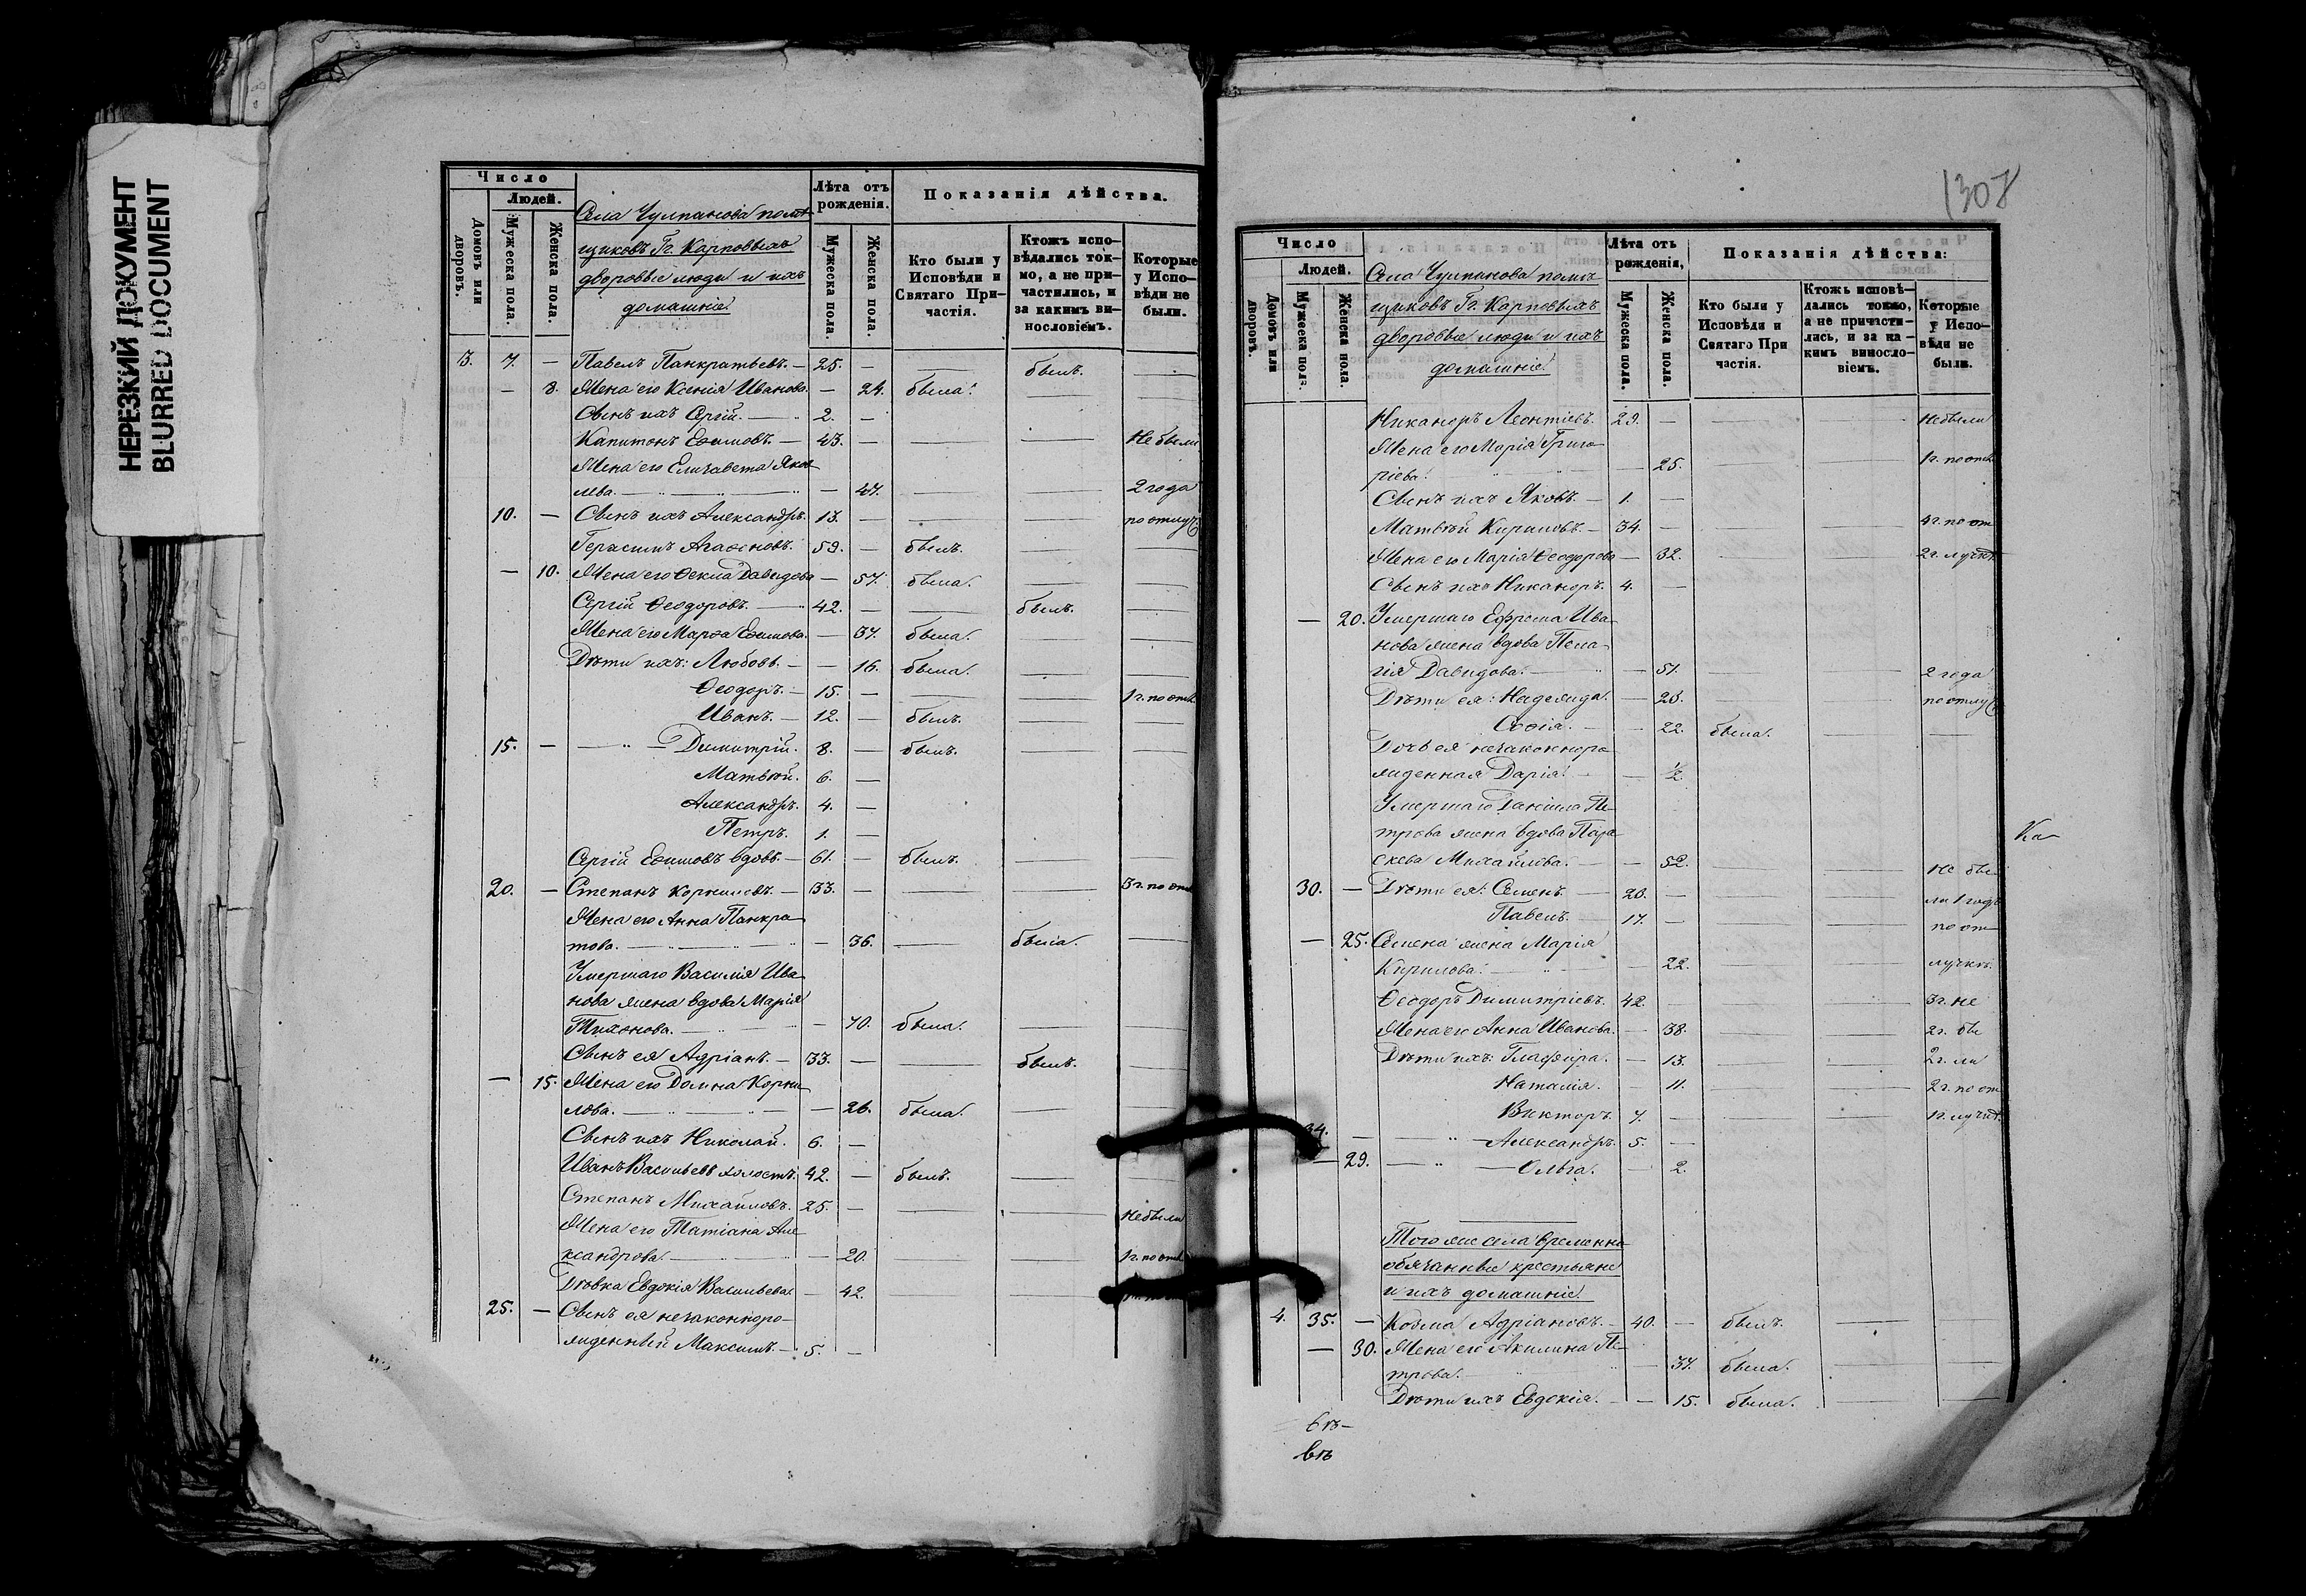 НЕРЕЗКИЙ ДОКУМЕНТ
BLURRED DOCUMENT
Число
Людей.
Домовъ или дворовъ.
Мужеска пола.
Женска пола.
Села Чулпанова помѣ-
щиковъ Гг. Карповыхъ
дворовые люди и ихъ
домашніе
Лѣта отъ рожденія.
Мужеска пола.
Женска пола.
Показанія дѣйства.
Кто были у Исповѣди и Святаго При-частія.
Ктожъ испо-вѣдались ток-мо, а не при-частились, и за какимъ ви-нословіемъ.
Которые у Испо-вѣди не были.
3. 7. — Павелъ Панкратьевъ. — 25. — — былъ. —
— 8. Жена его Ксенія Иванова. — 24. была. — —
Сынъ ихъ Сергій. — 2. —
Капитонъ Ефимовъ. — 43. — — — Не были
Жена его Елизавета Яков-
лева. — 47. — — 2 года
10. — Сынъ ихъ Александръ. 13. — — — по отлуч.
Герасимъ Агафоновъ. 59. — былъ. — —
— 10. Жена его Фекла Давидова — 57. была. — —
Сергій Феодоровъ. — 42. — — былъ. —
Жена его Марфа Ефимова. — 37. была. — —
Дѣти ихъ: Любовь. — — 16. была. — —
Феодоръ. — 15. — — — 1 г. по отл.
Иванъ. — 12. — былъ. — —
15. — — Димитрій. 8. — былъ. — —
Матвѣй. 6. —
Александръ. 4. —
Петръ. 1. —
Сергій Ефимовъ вдовъ. — 61. — былъ. — —
20. — Степанъ Корниловъ. — 33. — — — 3 г. по отл
Жена его Анна Панкра-
това. — 36. — была. —
Умершаго Василія Ива-
нова жена вдова Марія
Тихонова. — 70. была. — —
Сынъ ея Адріанъ. — 33. — — былъ. —
— 15. Жена его Домна Корни-
лова. — 26. была. — —
Сынъ ихъ Николай. 6. —
Иванъ Васильевъ холостъ. 42. — былъ. — —
Степанъ Михайловъ. 25. — — — Не были
Жена его Татіана Але-
ксандрова. — 20. — — 1 г. по отл
Дѣвка Евдокія Васильева. — 42. — —
25. — Сынъ ея незаконноро-
жденный Максимъ. — 5. —
1307
Число
Людей.
Домовъ или дворовъ.
Мужеска пола.
Женска пола.
Села Чулпанова помѣ-
щиковъ Гг. Карповыхъ
дворовые люди и ихъ
домашніе
Лѣта отъ рожденія,
Мужеска пола.
Женска пола.
Показанія дѣйства:
Кто были у Исповѣди и Святаго При частія.
Ктожъ исповѣ-дались токмо, а не причасти-лись, и за ка-кимъ винослo-віемъ.
Которые у Испо-вѣди не были.
Никаноръ Леонтіевъ. 29. — — — Не были
Жена его Марія Григо-
ріева. — 25. — — 1 г. по отл.
Сынъ ихъ Яковъ. — 1. —
Матвѣй Кириловъ. — 34. — — — 4 г. по от
Жена его Марія Феодорова — 32. — — 2 г. лучкѣ.
Сынъ ихъ Никаноръ. 4. —
— 20. Умершаго Ефрема Ива-
нова жена вдова Пела-
гія Давидова. — 51. — — 2 года
Дѣти ея: Надежда. — 23. — — по отлуч
Софія. — — 22. была. — —
Дочь ея незаконноро-
жденная Дарія. — — ½
Умершаго Даніила Пе-
трова жена вдова Пара-
скева Михайлова. — — 52. — — Не бы
30. — Дѣти ея: Семенъ. — 20. — — — ли 1 годъ
Павелъ. — 17. — — — по от
— 25. Семена жена Марія
Кирилова. — 22. — — лучкѣ.
Феодоръ Димитріевъ. 42. — — — 3 г. не
Жена его Анна Иванова. — 38. — — 2 г. бы
Дѣти ихъ: Глафира. — 13. — — 2 г. ли
Наталія. — 11. — — 2 г. по от
Викторъ. 7. — — — 1 г. лучкѣ.
34. — — Александръ. 5. —
— 29. — Ольга. — 2.
Того же села временно
обязанные крестьяне
и ихъ домашніе
4. 35. — Козма Адріановъ. — 40. — былъ. — —
— 30. Жена его Акилина Пе-
трова. — 37. была. — —
Дѣти ихъ Евдокія. — — 15. была. — —
Ка-